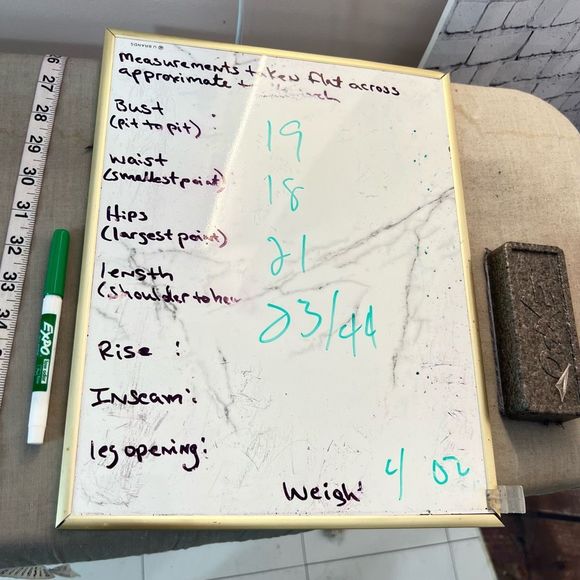 U BRANDS
measurements taken flat across
approximate
Bust
(pit to pit) : 19
waist
(smallest point) 18
Hips
(largest point) 21
length
(shoulder to hem 23/44
Rise :
Inseam:
leg opening:
Weigh 4 oz
26
27
28
29
30
31
32
33
34
EXPO